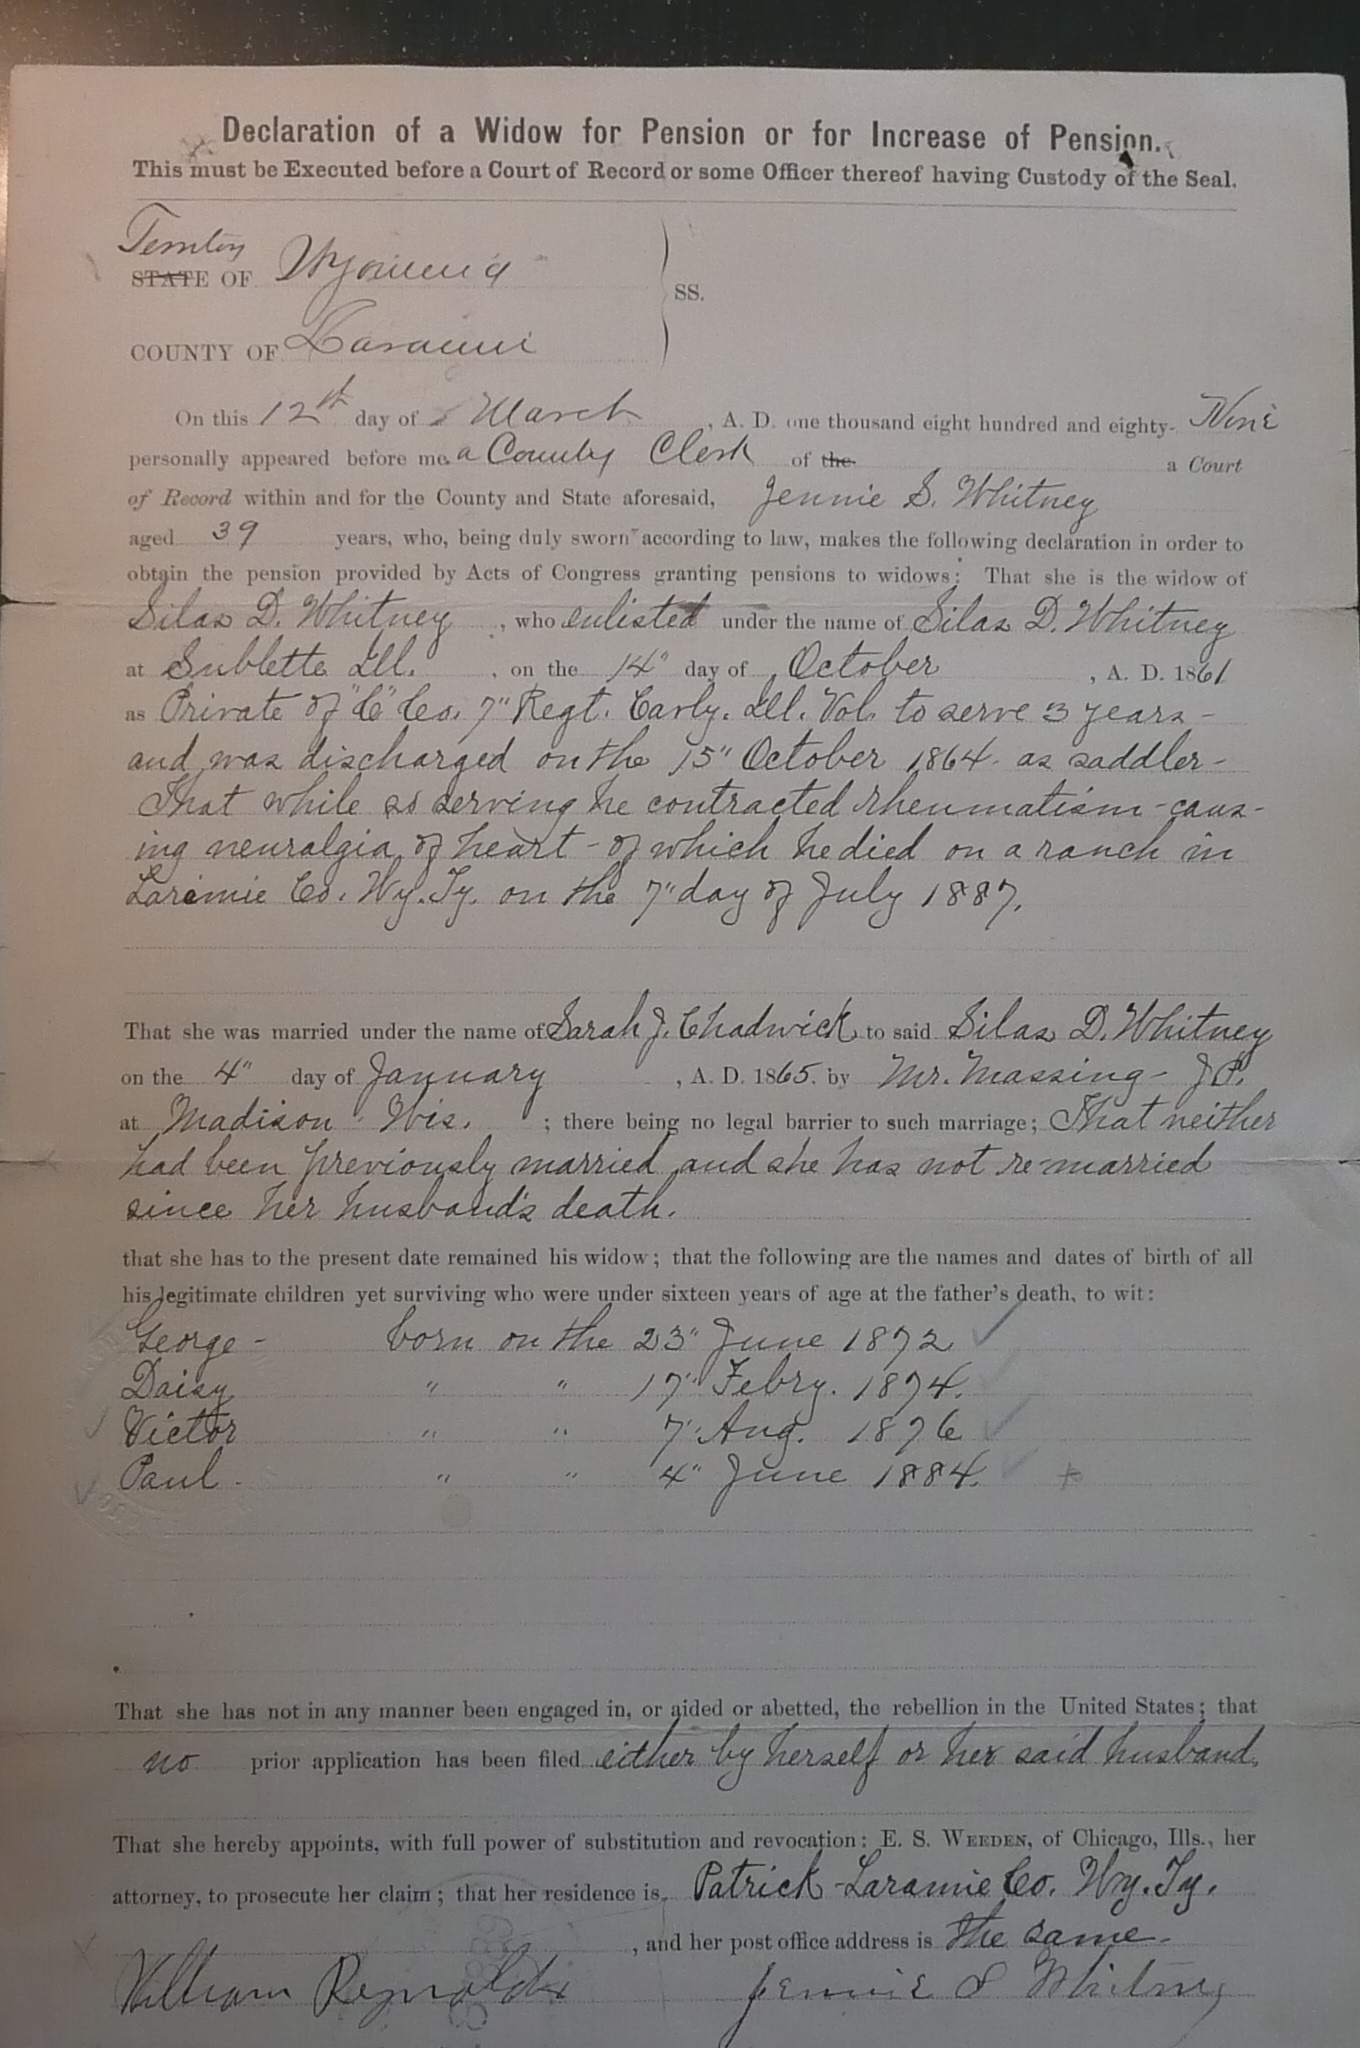 Declaration of a Widow for Pension or for Increase of Pension.
This must be Executed before a Court of Record or some Officer thereof having Custody of the Seal.
Territory
STATE OF Wyoming
SS.
COUNTY OF Laramie
On this 12th day of March, A. D. one thousand eight hundred and eighty- Nine
personally appeared before me a County Clerk of the a Court
of Record within and for the County and State aforesaid, Jennie S. Whitney
aged 39 years, who, being duly sworn according to law, makes the following declaration in order to
obtain the pension provided by Acts of Congress granting pensions to widows: That she is the widow of
Silas D. Whitney, who enlisted under the name of Silas D. Whitney
at Sublette Ill., on the 14" day of October, A. D. 1861
as Private of "C" Co. 7" Regt. Cavly. Ill. Vol. to serve 3 years -
and was discharged on the 15" October 1864 - as saddler -
That while so serving he contracted rheumatism - caus-
ing neuralgia of heart - of which he died on a ranch in
Laramie Co. Wy. Ty. on the 7" day of July 1887.
That she was married under the name of Sarah J. Chadwick to said Silas D. Whitney
on the 4" day of January, A. D. 1865. by Mr. Massing - J.P.
at Madison Wis. ; there being no legal barrier to such marriage; That neither
had been previously married and she has not re-married
since her husband's death.
that she has to the present date remained his widow; that the following are the names and dates of birth of all
his legitimate children yet surviving who were under sixteen years of age at the father's death, to wit:
George - born on the 23" June 1872
Daisy " " 17" Febry. 1874.
Victor " " 7" Aug. 1876
Paul - " " 4" June 1884.
That she has not in any manner been engaged in, or aided or abetted, the rebellion in the United States; that
no prior application has been filed either by herself or her said husband.
That she hereby appoints, with full power of substitution and revocation: E. S. WEEDEN, of Chicago, Ills., her
attorney, to prosecute her claim; that her residence is Patrick - Laramie Co. Wy. Ty.
, and her post office address is the same -
William Reynolds Jennie S Whitney